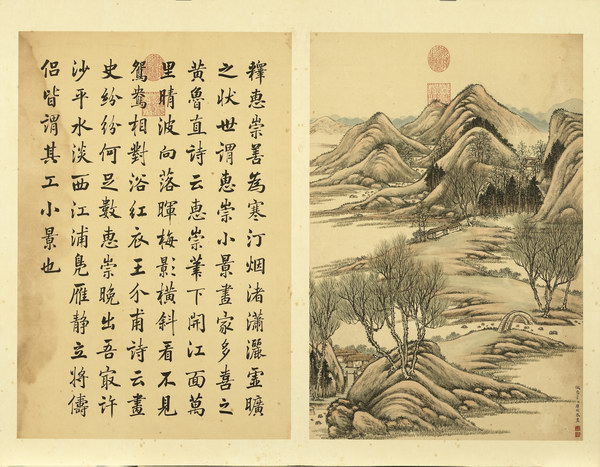 釋惠崇善為寒汀烟渚瀟灑虛曠
之狀世謂惠崇小景畫家多喜之
黃魯直詩云惠崇筆下開江面萬
里晴波向落暉梅影橫斜看不見
鴛鴦相對浴紅衣王介甫詩云畫
史紛紛何足數惠崇晚出吾最許
沙平水淡西江浦鳧雁靜立將儔
侶皆謂其工小景也